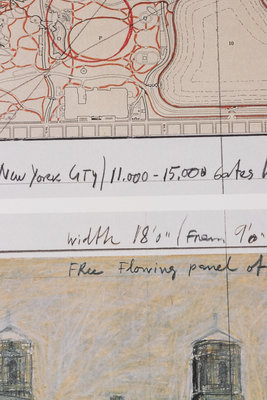 P
10
New York City / 11.000 - 15.000 Gates
width 18'0" / From 9'0"
Free Flowing panel of